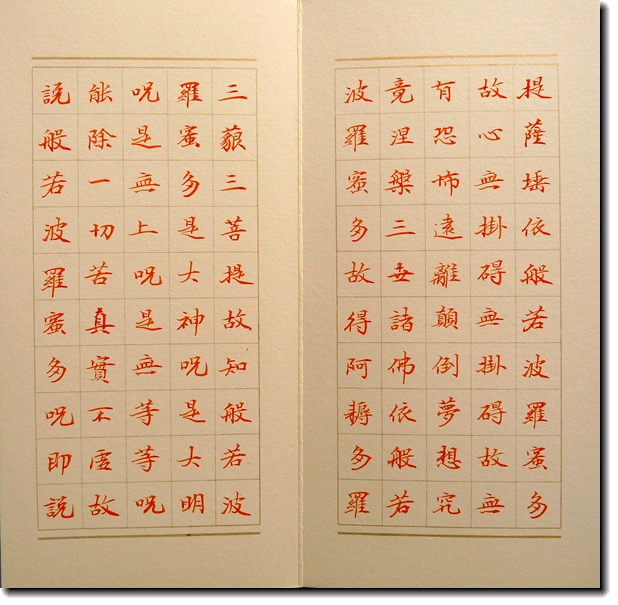 提薩埵依般若波羅蜜多
故心無掛碍無掛碍故無
有恐怖遠離顛倒夢想究
竟涅槃三世諸佛依般若
波羅蜜多故得阿耨多羅
三藐三菩提故知般若波
羅蜜多是大神咒是大明
咒是無上咒是無等等咒
能除一切苦真實不虛故
說般若波羅蜜多咒即說